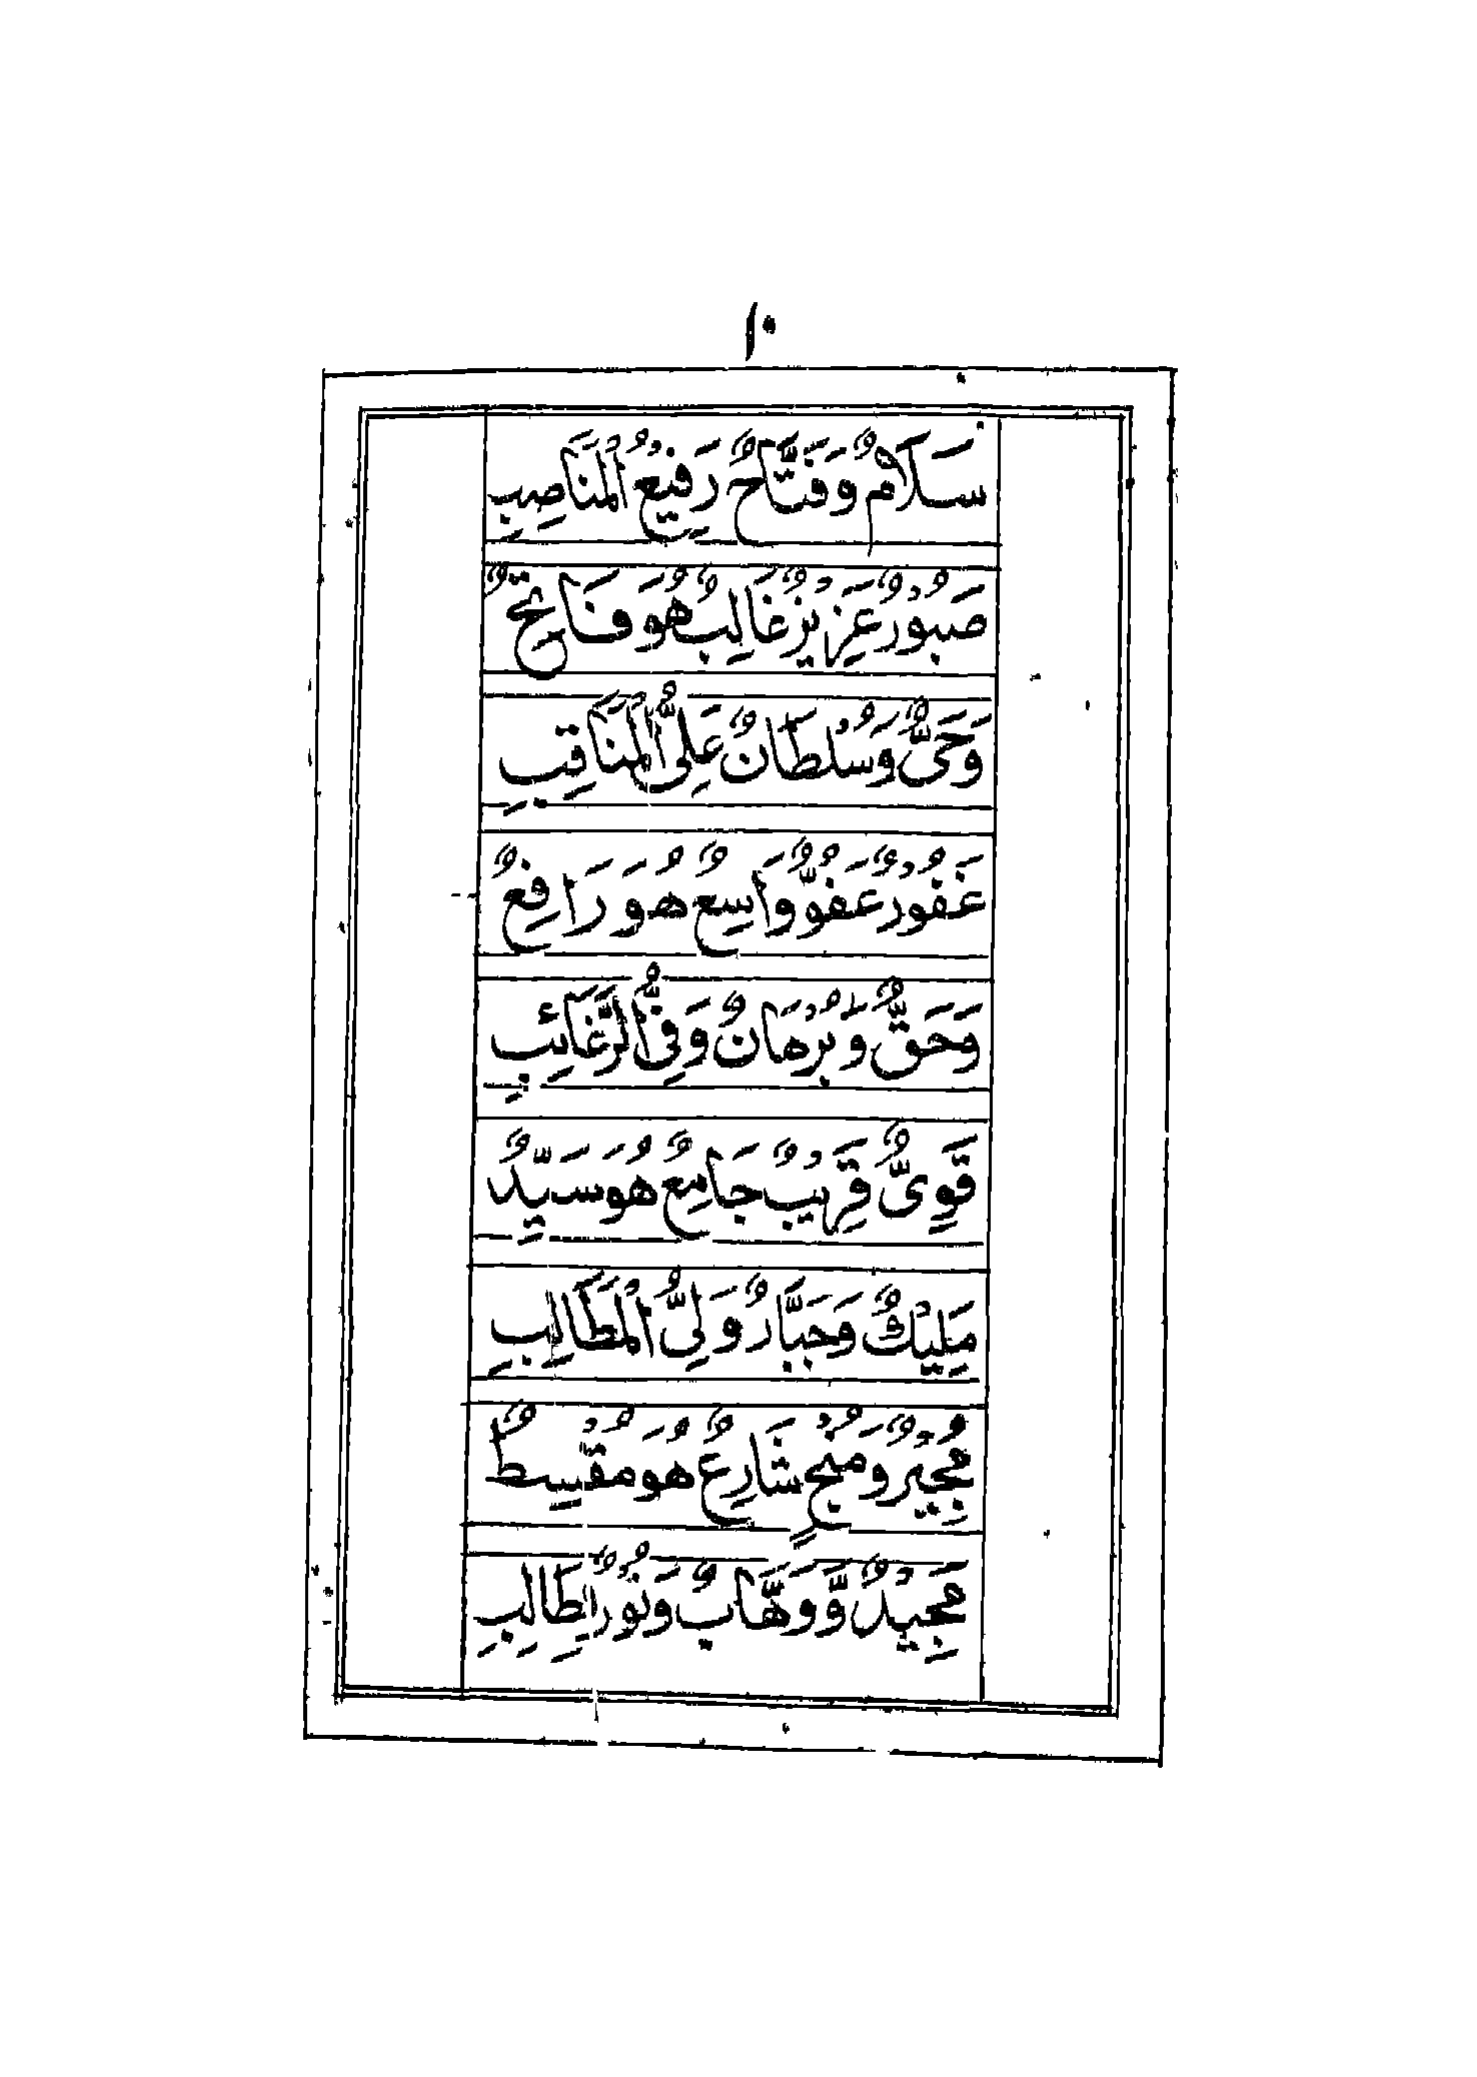 ١٠
سَلَامٌ وَفَتَّاحٌ رَفِيْعُ الْمَنَاصِبِ
صَبُوْرٌ عَزِيْزٌ غَالِبٌ هُوَ فَاتِحٌ
وَحَىٌّ وَسُلْطَانٌ عَلِىُّ الْمَنَاقِبِ
غَفُوْرٌ عَفُوٌّ وَاسِعٌ هُوَ رَافِعٌ
وَحَقٌّ وَبُرْهَانٌ وَفِىُّ الرَّغَائِبِ
قَوِىٌّ قَرِيْبٌ جَامِعٌ هُوَ سَيِّدٌ
مَلِيْكٌ وَجَبَّارٌ وَلِىُّ الْمَطَالِبِ
مُجِيْرٌ وَمُنْجٍ شَارِعٌ هُوَ مُقْسِطٌ
مَجِيْدٌ وَّوَهَّابٌ وَنُوْرٌ لِطَالِبِ